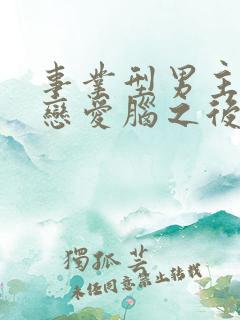 事業型男主
戀愛腦之後
獨孤芸
未經同意禁止轉載